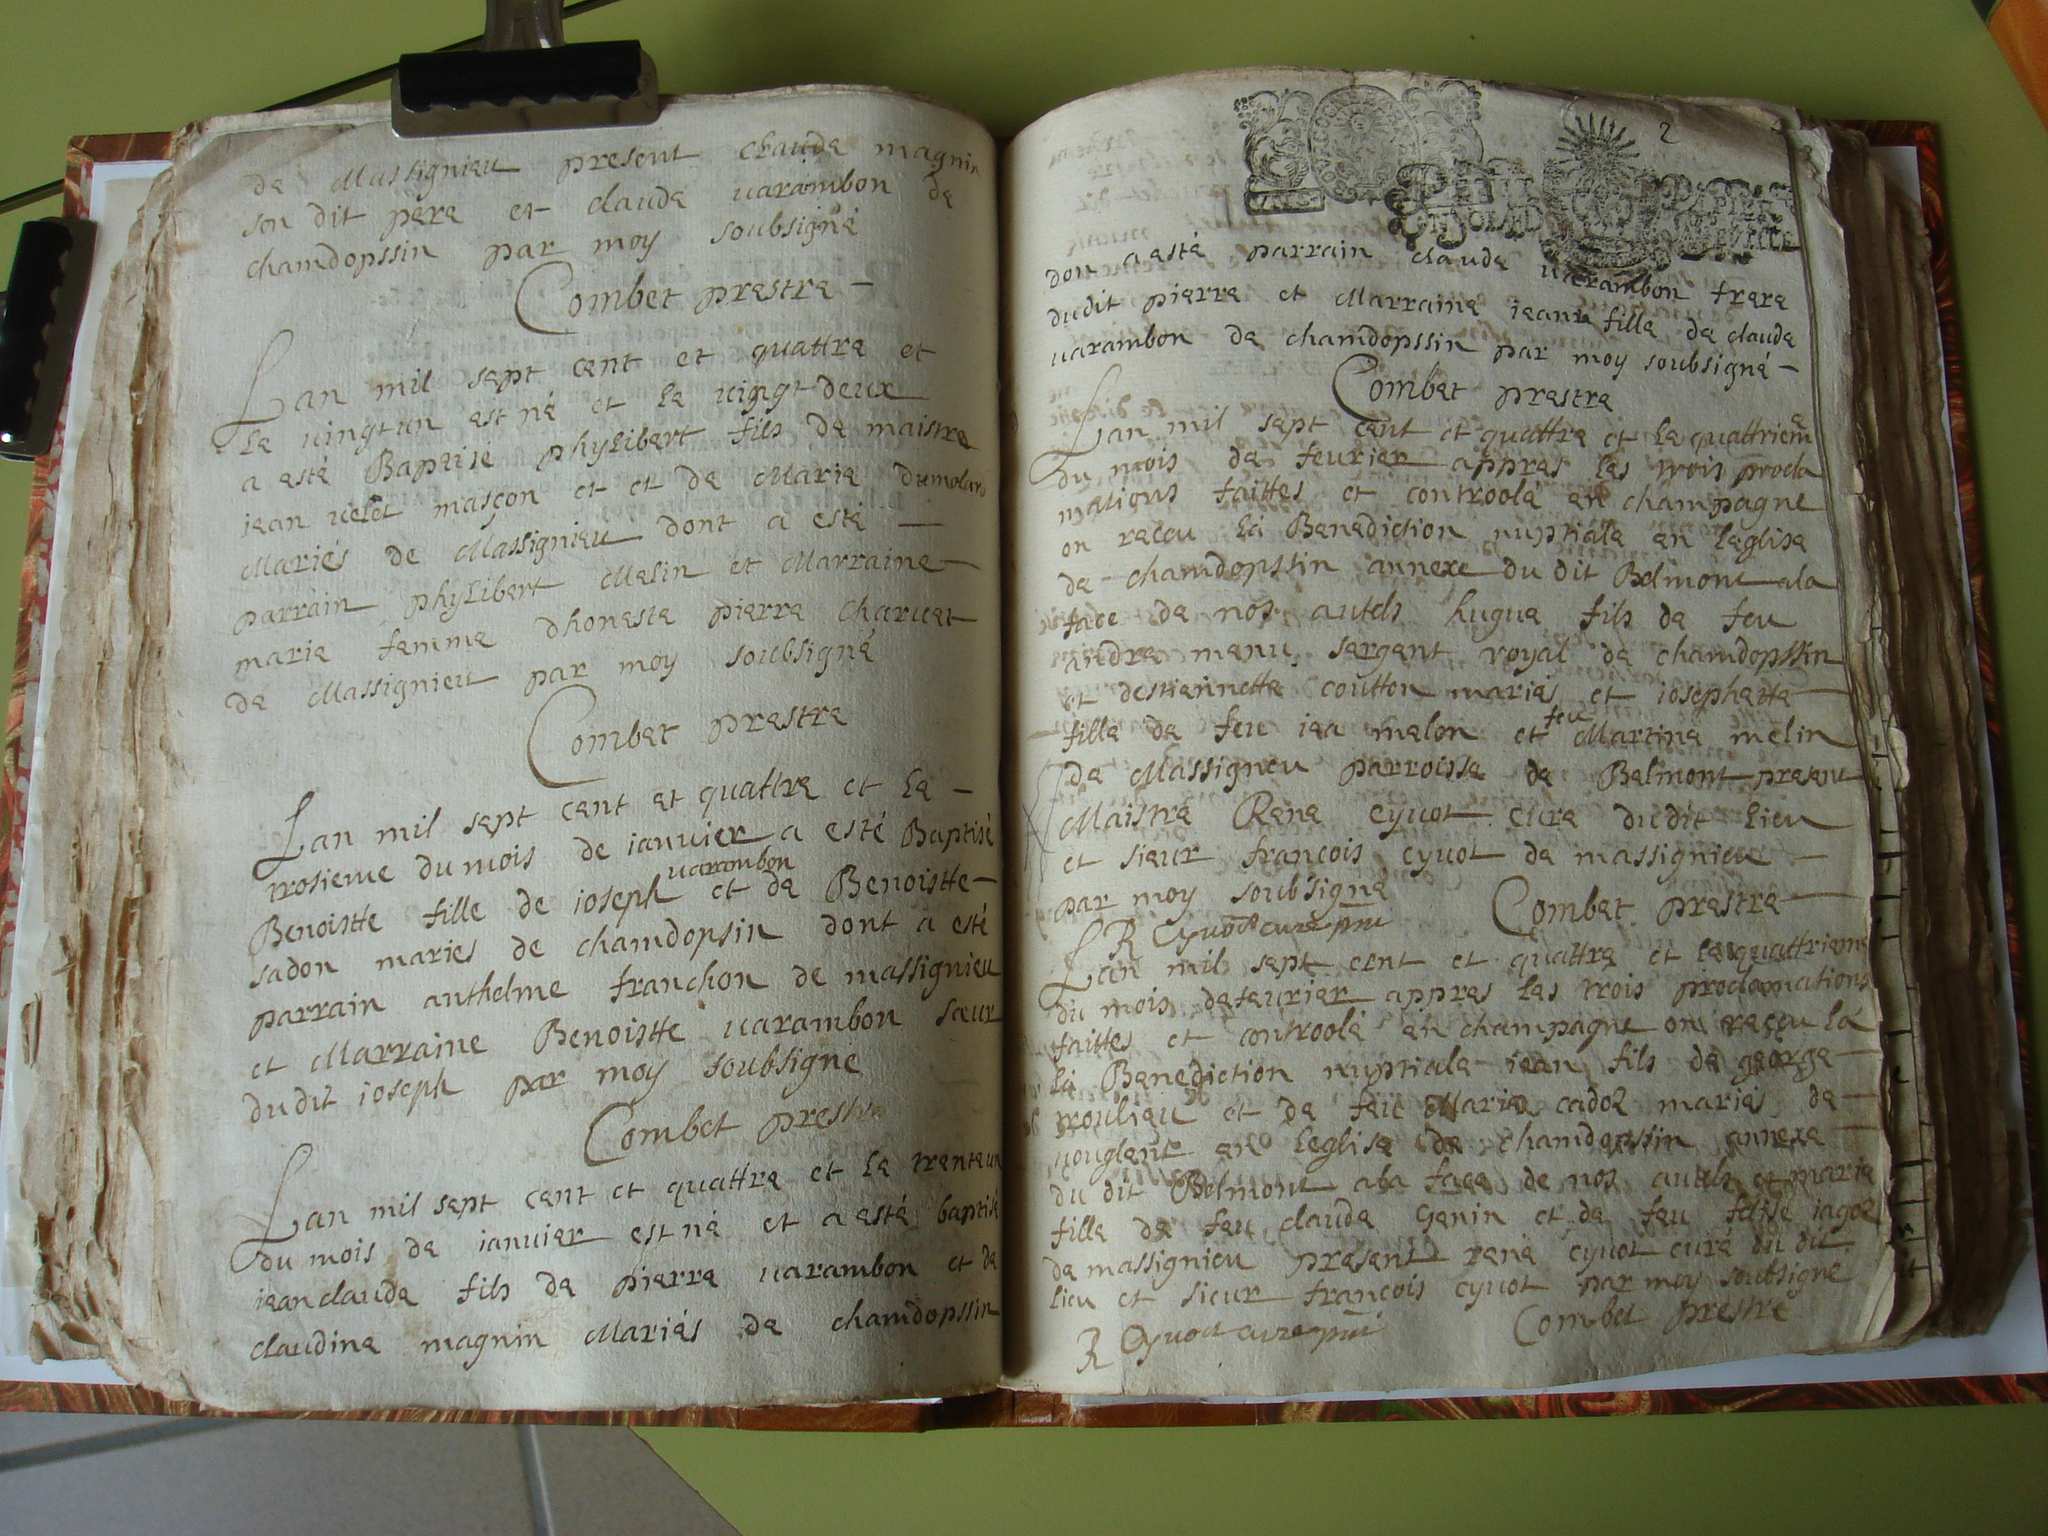 de Massignieu present claude magnin
son dit pere et claude varambon de
chamdopssin par moy soubsigné
Combet prestre
Lan mil sept cent et quattre et
le vingt un est né et le vingt deux
a esté Baptisé phylibert fils de maistre
iean velet masçon et et de Marie dumolard
Mariés de Massignieu dont a esté
parrain phylibert Melin et Marraine
marie femme dhoneste pierre charvet
de Massignieu par moy soubsigné
Combet prestre
Lan mil sept cent et quattre et le
trosieme du mois de ianvier a esté Baptisé
Benoistte fille de ioseph varambon et de Benoistte
sadon mariés de chamdopsin dont a esté
parrain anthelme franchon de massignieu
et Marraine Benoistte varambon sœur
dudit ioseph par moy soubsigné
Combet prestre
Lan mil sept cent et quattre et le trenteun
du mois de ianvier est né et a esté baptisé
iean claude fils de pierre varambon et de
claudine magnin Mariés de chamdopssin
2
don a esté parrain claude varambon frere
dudit pierre et Marraine ieann fille de claude
varambon de chamdopssin par moy soubsigné
Combet prestre
Lan mil sept cent et quattre et le quattrieme
du mois de fevrier appres les trois procla
mations faittes et controolé en champagne
on reçeu la Benediction nuptiale en leglise
de chamdopssin annexe du dit Belmont a la
face de nos autels hugue fils de feu
andre menu sergent royal de chamdopssin
et destiennette coutton mariés et iosephette
fille de feu iea melon et feu Martine melin
de Massigneu parroisse de Belmont present
Maistre Rene Cyvot cure dudit lieu
et sieur françois cyvot de massignieu
par moy soubsigné Combet prestre
R Cyvoct curé pnt
Lan mil sept cent et quattre et le quattrieme
du mois de fevrier appres les trois proclamations
faittes et controolé en champagne on reçeu la
la Benediction nuptiale iean fils de george
troulieu et de feu Marie cadoz mariés de
vouglent en leglise de chamdopssin annexe
du dit Belmont a la face de nos autels et marie
fille de feu claude Genin et de feu felise iagoz
de massignieu present rené cyvot curé du dit
lieu et sieur françois cyvot par moy soubsigné
R Cyvoct curé pnt Combet prestre